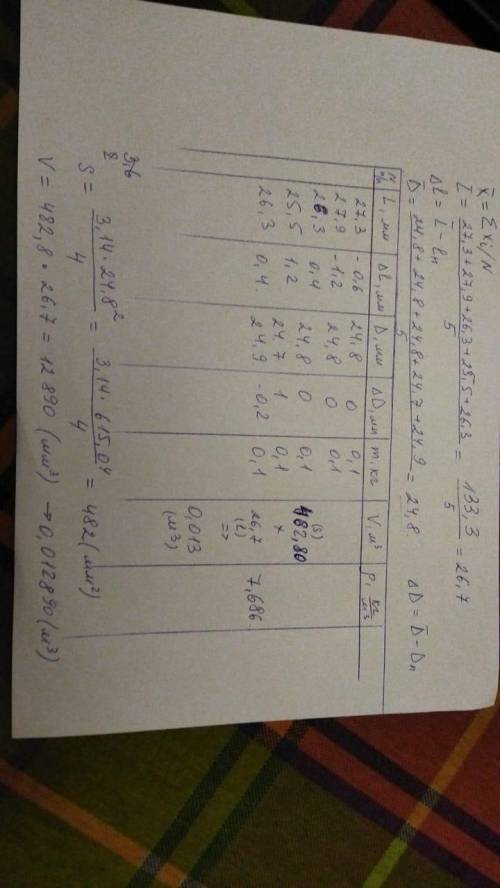 X̄ = ΣXi/N
L̄ = 27,3+27,9+26,3+25,5+26,3 / 5 = 133,3 / 5 = 26,7
ΔL = L̄ - Ln
D̄ = 24,8+24,8+24,8+24,7+24,9 / 5 = 24,8 ΔD = D̄ - Dn
N п/п L, мм ΔL, мм D, мм ΔD, мм m, кг V, м³ ρ, кг/м³
27,3 -0,6 24,8 0 0,1
27,9 -1,2 24,8 0 0,1
26,3 0,4 24,8 0 0,1 (S) 482,80 ×
25,5 1,2 24,7 1 0,1 26,7 (L) => 7,686
26,3 0,4 24,9 -0,2 0,1 0,013 (м³)
S = 3,14·24,8² / 4 = 3,14·615,04 / 4 = 482 (мм²)
V = 482,8 · 26,7 = 12890 (мм³) → 0,012890 (м³)